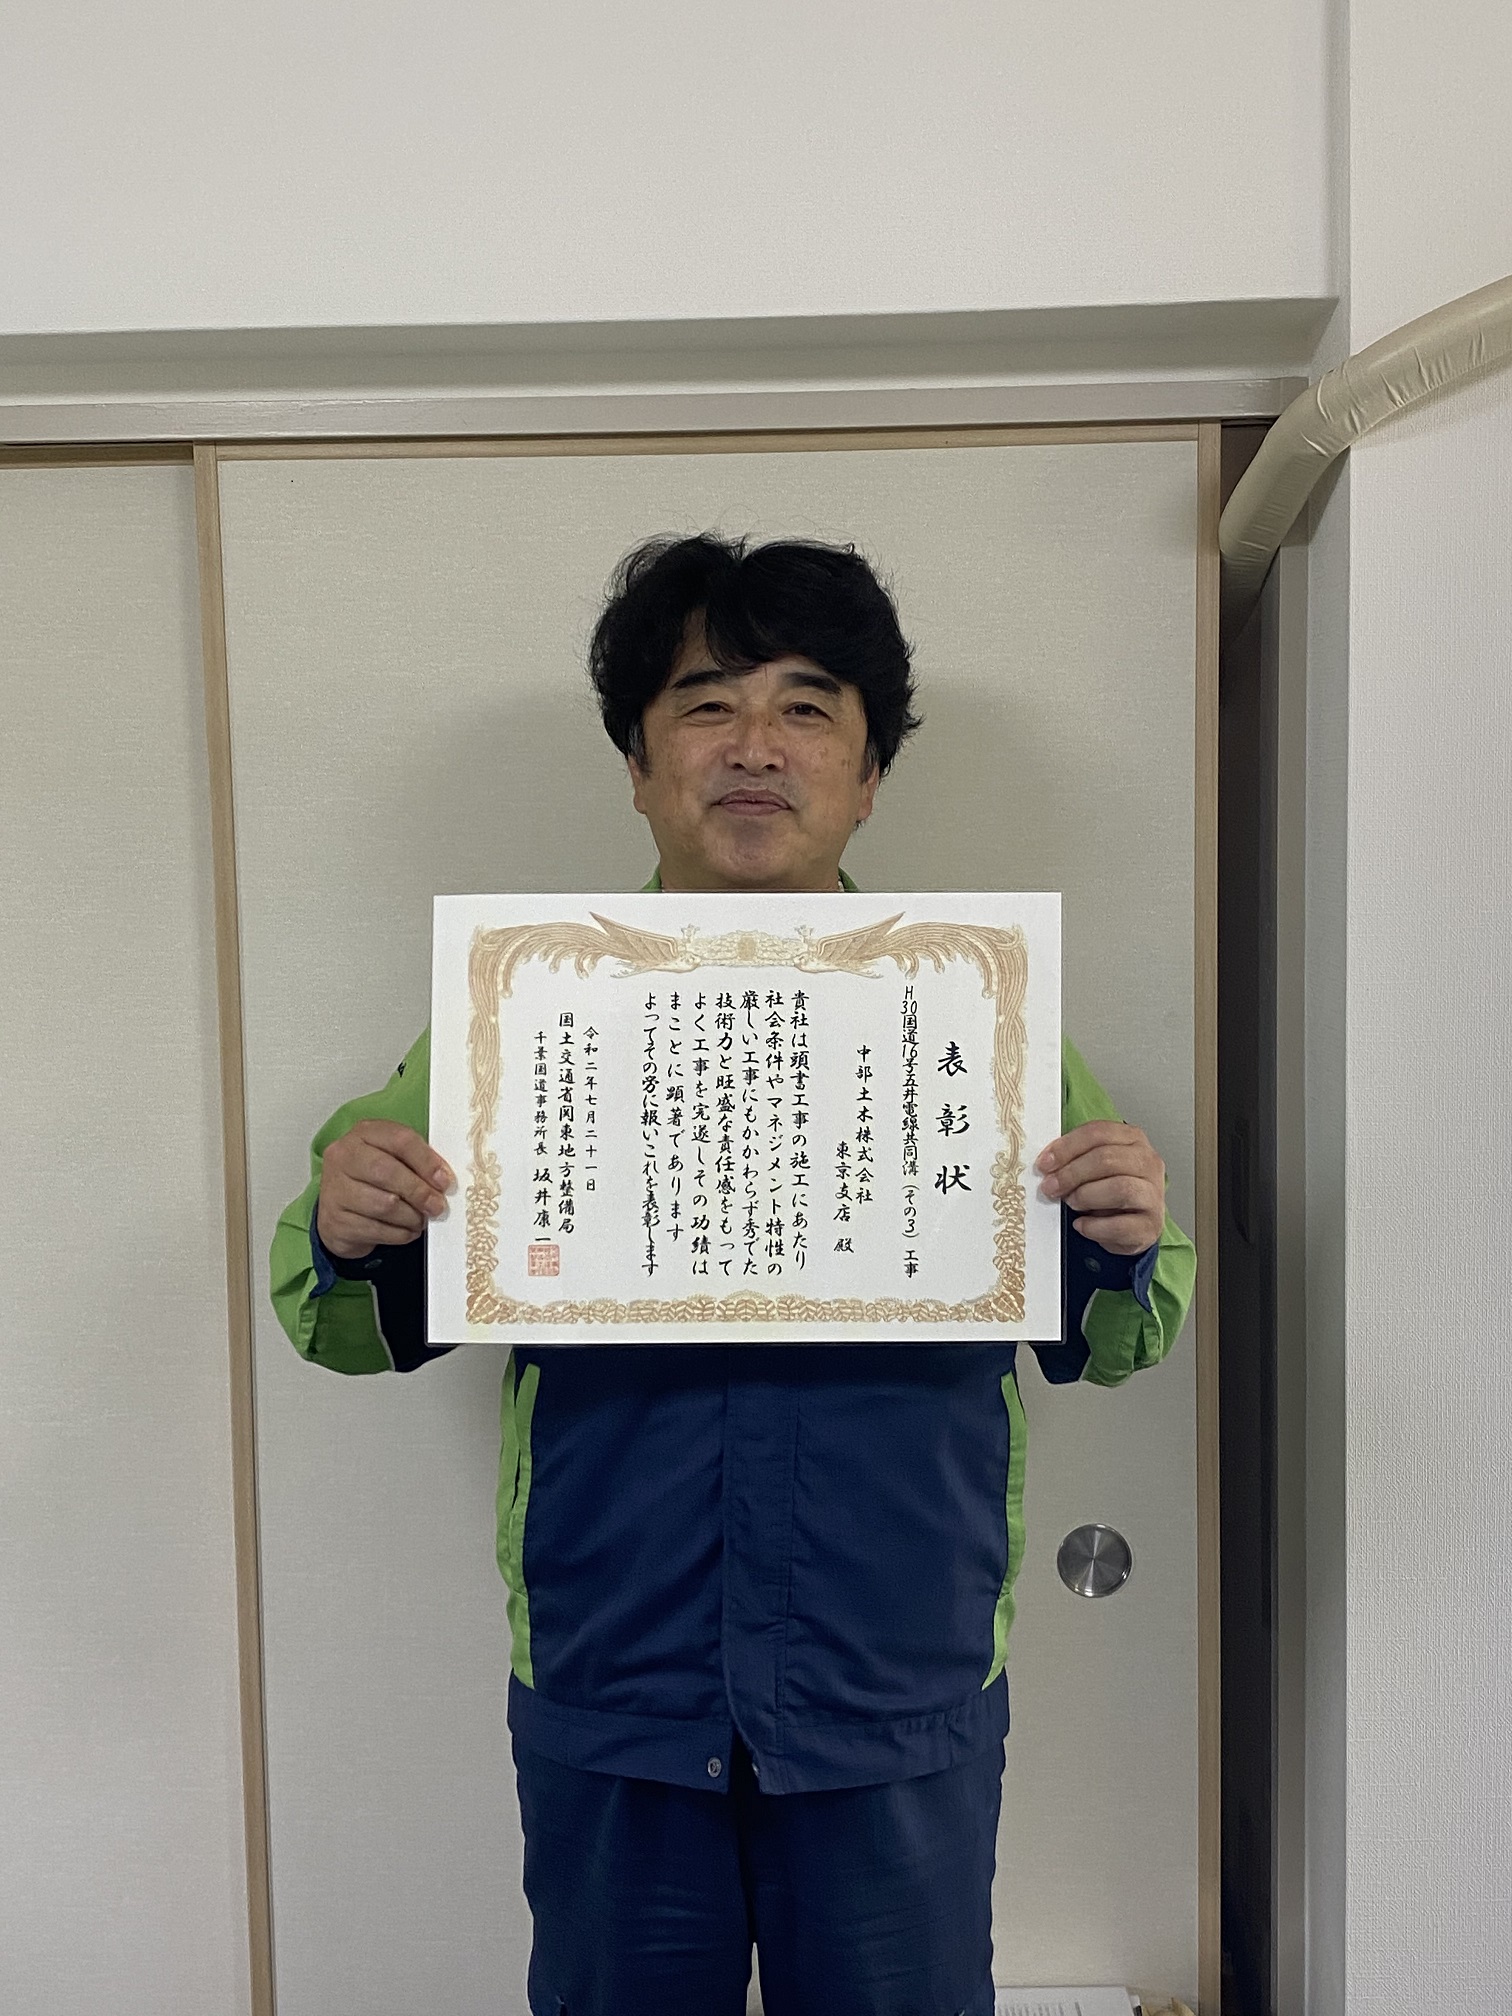 表彰状
H30国道16号五井電線共同溝（その3）工事
中部土木株式会社
東京支店 殿
貴社は頭書工事の施工にあたり
社会条件やマネジメント特性の
厳しい工事にもかかわらず秀でた
技術力と旺盛な責任感をもって
よく工事を完遂しその功績は
まことに顕著であります
よってその労に報いこれを表彰します
令和二年七月二十一日
国土交通省関東地方整備局
千葉国道事務所長 坂井康一